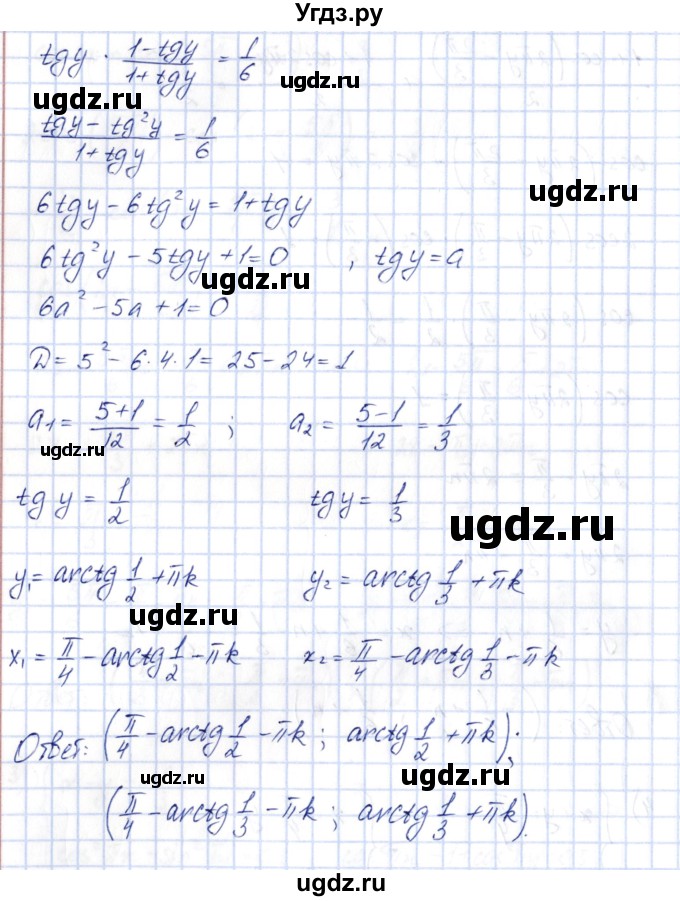 Угдз.ру
tgy · (1-tgy)/(1+tgy) = 1/6
ugdz.ru
ugdz.ru
(tgy - tg²y)/(1+tgy) = 1/6
6tgy - 6tg²y = 1+tgy
6tg²y - 5tgy + 1 = 0 , tgy = a
ugdz.ru
6a² - 5a + 1 = 0
D = 5² - 6·4·1 = 25 - 24 = 1
a₁ = (5+1)/12 = 1/2 ; a₂ = (5-1)/12 = 1/3
ugdz.ru
tgy = 1/2 tgy = 1/3
ugdz.ru
y₁ = arctg 1/2 + πk y₂ = arctg 1/3 + πk
ugdz.ru
x₁ = π/4 - arctg 1/2 - πk x₂ = π/4 - arctg 1/3 - πk
Ответ: (π/4 - arctg 1/2 - πk ; arctg 1/2 + πk);
ugdz.ru
ugdz.ru
(π/4 - arctg 1/3 - πk ; arctg 1/3 + πk).
ugdz.ru
ugdz.ru